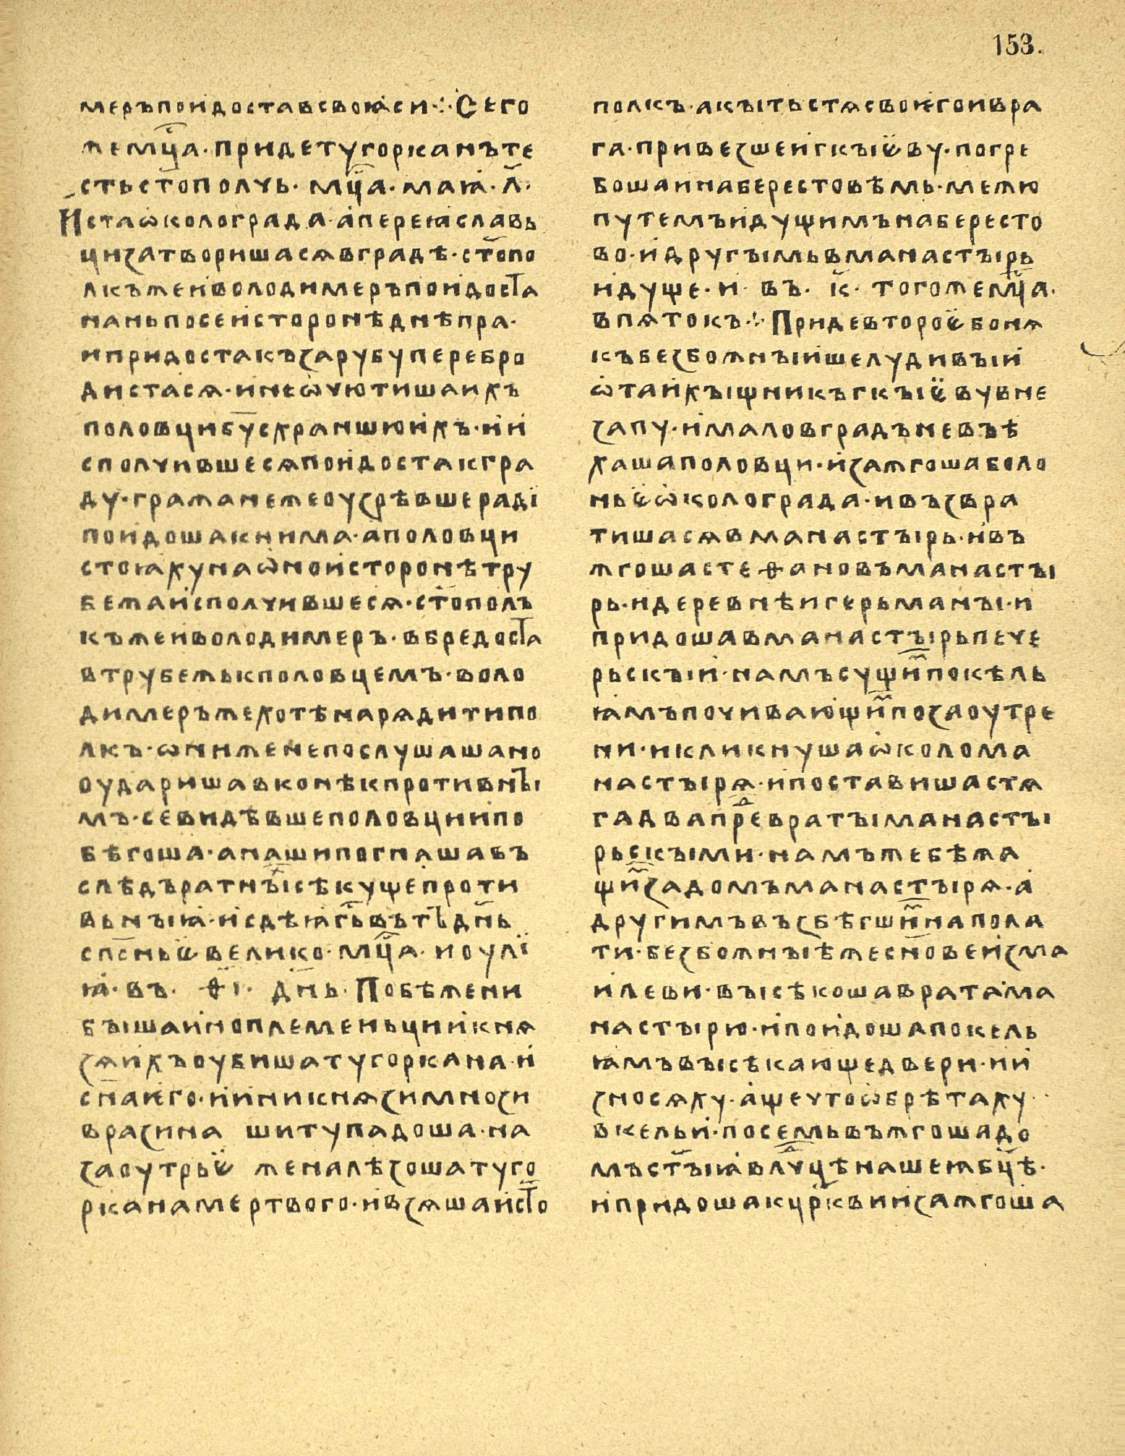 153.
меръпоидоставсвоꙗси·:·Сего
жемⷭ҇ца·придетугорканъте
стьст҃ополчь·мⷭ҇ца·маꙗ·л҃·
Истаѡколограда·апереꙗславь
цизатворишасѧвградѣ·ст҃опо
лкъжеиволодимеръпоидостⷶ
наньпосеисторонѣднѣпра·
ипридостакъзарубуперебро
дистасѧ·инеѡчютишаихъ
половцибу҃схраншюихъ·ии
сполчившесѧпоидостакгра
ду·гражанежеоузрѣвшерадї
поидошакнима·аполовци
стоꙗхунаѡноисторонѣтру
бежаисполчившесѧ·ст҃ополъ
къжеиволодимеръ·вбредостⷶ
втрубежькполовцемъ·воло
димеръжехотѣнарѧдитипо
лкъ·ѡнижененепослушашано
оударишавконѣкпротивны
мъ·севидѣвшеполовциипо
бѣгоша·анашипогнашавъ
слѣдъратныⷯсѣкущепроти
вьныꙗ·исдѣꙗг҃ьвътъд҃нь
сп҃сньⷷвелико·мⷭ҇ца·иоулї
ꙗ·въ·ѳ҃і·д҃нь·Побѣжени
бышаиноплеменьциикнѧ
зѧихъоубишатугоркана·и
сн҃аиего·ииникнѧзимнози
вразина шитупадоша·на
заоутрьⷷ женалѣзошатуго
рканамертвого·ивзѧшаист҃о
полкъ·акытьстѧсвоегоивра
га·привезшеигкыⷷву·погре
бошаинаберестовѣмь·межю
путемъидущимънабересто
во·идругымьвманастырь
идуще·и·въ·к҃·тогожемⷭ҇ца·
впѧтокъ·:·Придевтороⷷбонѧ
къбезбожныишелудивыи
ѿтаихыщникъгкыⷷвувне
запу·ималовградъневъѣ
хашаполовци·изажгошаболо
ньⷷѡколограда·ивъзвра
тишасѧвманастырь·ивъ
жгошастеѳановъманасты
рь·идеревнѣигерьманы·и
придошавманастырьпече
рьскыи·намъсущиⷨпокѣль
ꙗмъпочивающиⷨпозаоутре
ни·икликнушаѡколома
настырѧ·ипоставишастѧ
гадвапреⷣвратыманасты
рьскыми·намъжебѣжа
щиⷨзадомъманастырѧ·а
другимъвъзбѣгшиⷨнапола
ти·безбожныѣжесн҃овеизма
илеви·высѣкошавратама
настырю·ипоидошапокель
ꙗмъвысѣкающедвери·ии
зносѧху·ащечтоѡбрѣтаху·
вкельи·посемьвъжгошадо
мъст҃ыꙗвлⷣчцѣнашеꙗбц҃ѣ·
ипридошакцр҃квииизажгоша